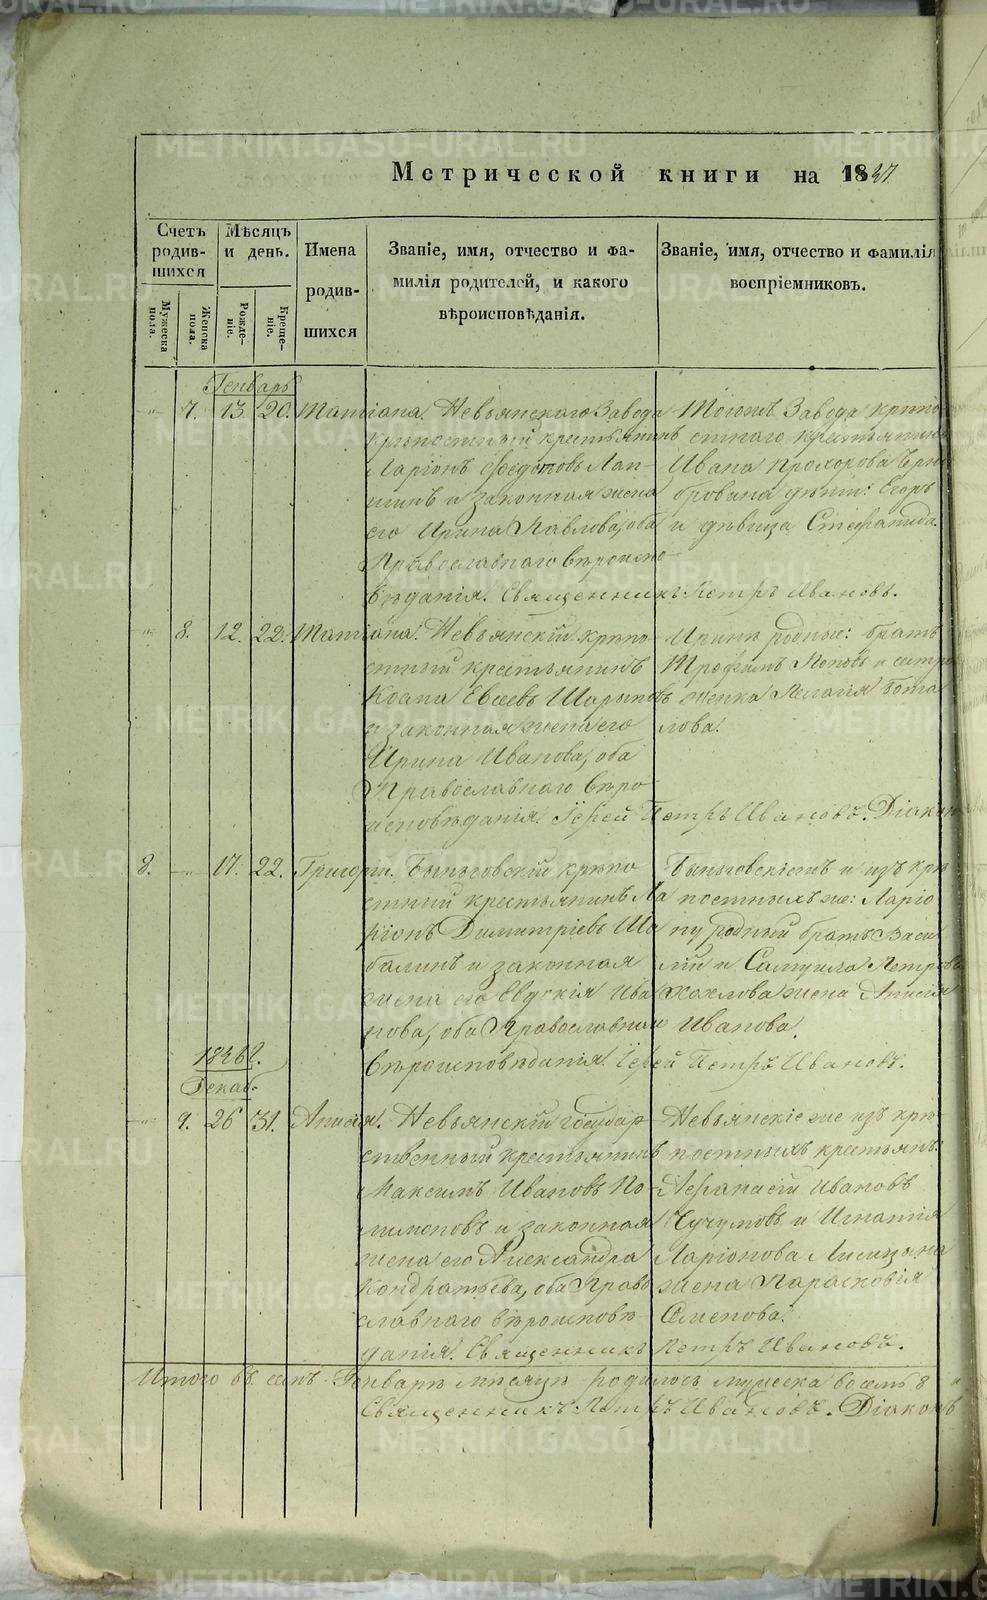 Метрической книги на 1847.
Счетъ родив-шихся
Мужеска пола.
Женска пола.
Мѣсяцъ и день.
Рожде-ніе.
Креще-ніе.
Имена родив-шихся
Званіе, имя, отчество и фа-
милія родителей, и какого
вѣроисповѣданія.
Званіе, имя, отчество и фамилія
воспріемниковъ.
Генварь
7. 13. 20. Татіана.
Невьянскаго Завода
крѣпостный крестьянинъ
Ларіонъ Федотовъ Лап-
шинъ и законная жена
его Ирина Павлова, оба
Православнаго вѣроиспо-
вѣданія. Священникъ Петръ Ивановъ.
Тогожъ Завода крѣпо-
стнаго крестьянина
Ивана Прохорова
бровина дѣти: Егоръ
и дѣвица Стефанида.
8. 12. 22. Татіана.
Невьянскій крѣпо-
стный крестьянинъ
Евсеевъ
и законная жена его
Ирина Иванова, оба
Православнаго вѣро-
исповѣданія. Іерей Петръ Ивановъ. Діаконъ
Иринѣ родные: братъ
Трофимъ Поповъ и сестра
женка Пелагія
лова.
8. 17. 22. Григорій.
Быньговскій крѣпо-
стный крестьянинъ Ла-
ріонъ Димитріевъ Ша-
балинъ и законная
жена его Евдокія Ива-
нова, оба Православнаго
вѣроисповѣданія. Іерей Петръ Ивановъ.
Быньговскіежъ и изъ крѣ-
постныхъ же: Ларіо-
ну родный братъ Васи-
лій и Самуила Петрова
Хохлова жена Анисія
Иванова.
1846 г.
Декаб.
9. 26 31. Анисія.
Невьянскій государ-
ственный крестьянинъ
Максимъ Ивановъ По-
лимоновъ и законная
жена его Александра
Кондратьева, оба Право-
славнаго вѣроисповѣ-
данія. Священникъ Петръ Ивановъ.
Невьянскіе же изъ крѣ-
постныхъ крестьянъ:
Афанасій Ивановъ
Чучумовъ и Игнатія
Ларіонова Лисицына
жена Парасковія
Семенова.
Итого въ семъ Генварѣ мѣсяцѣ родилось мужеска восемь 8
Священникъ Петръ Ивановъ. Діаконъ
METRIKI.GASO-URAL.RU